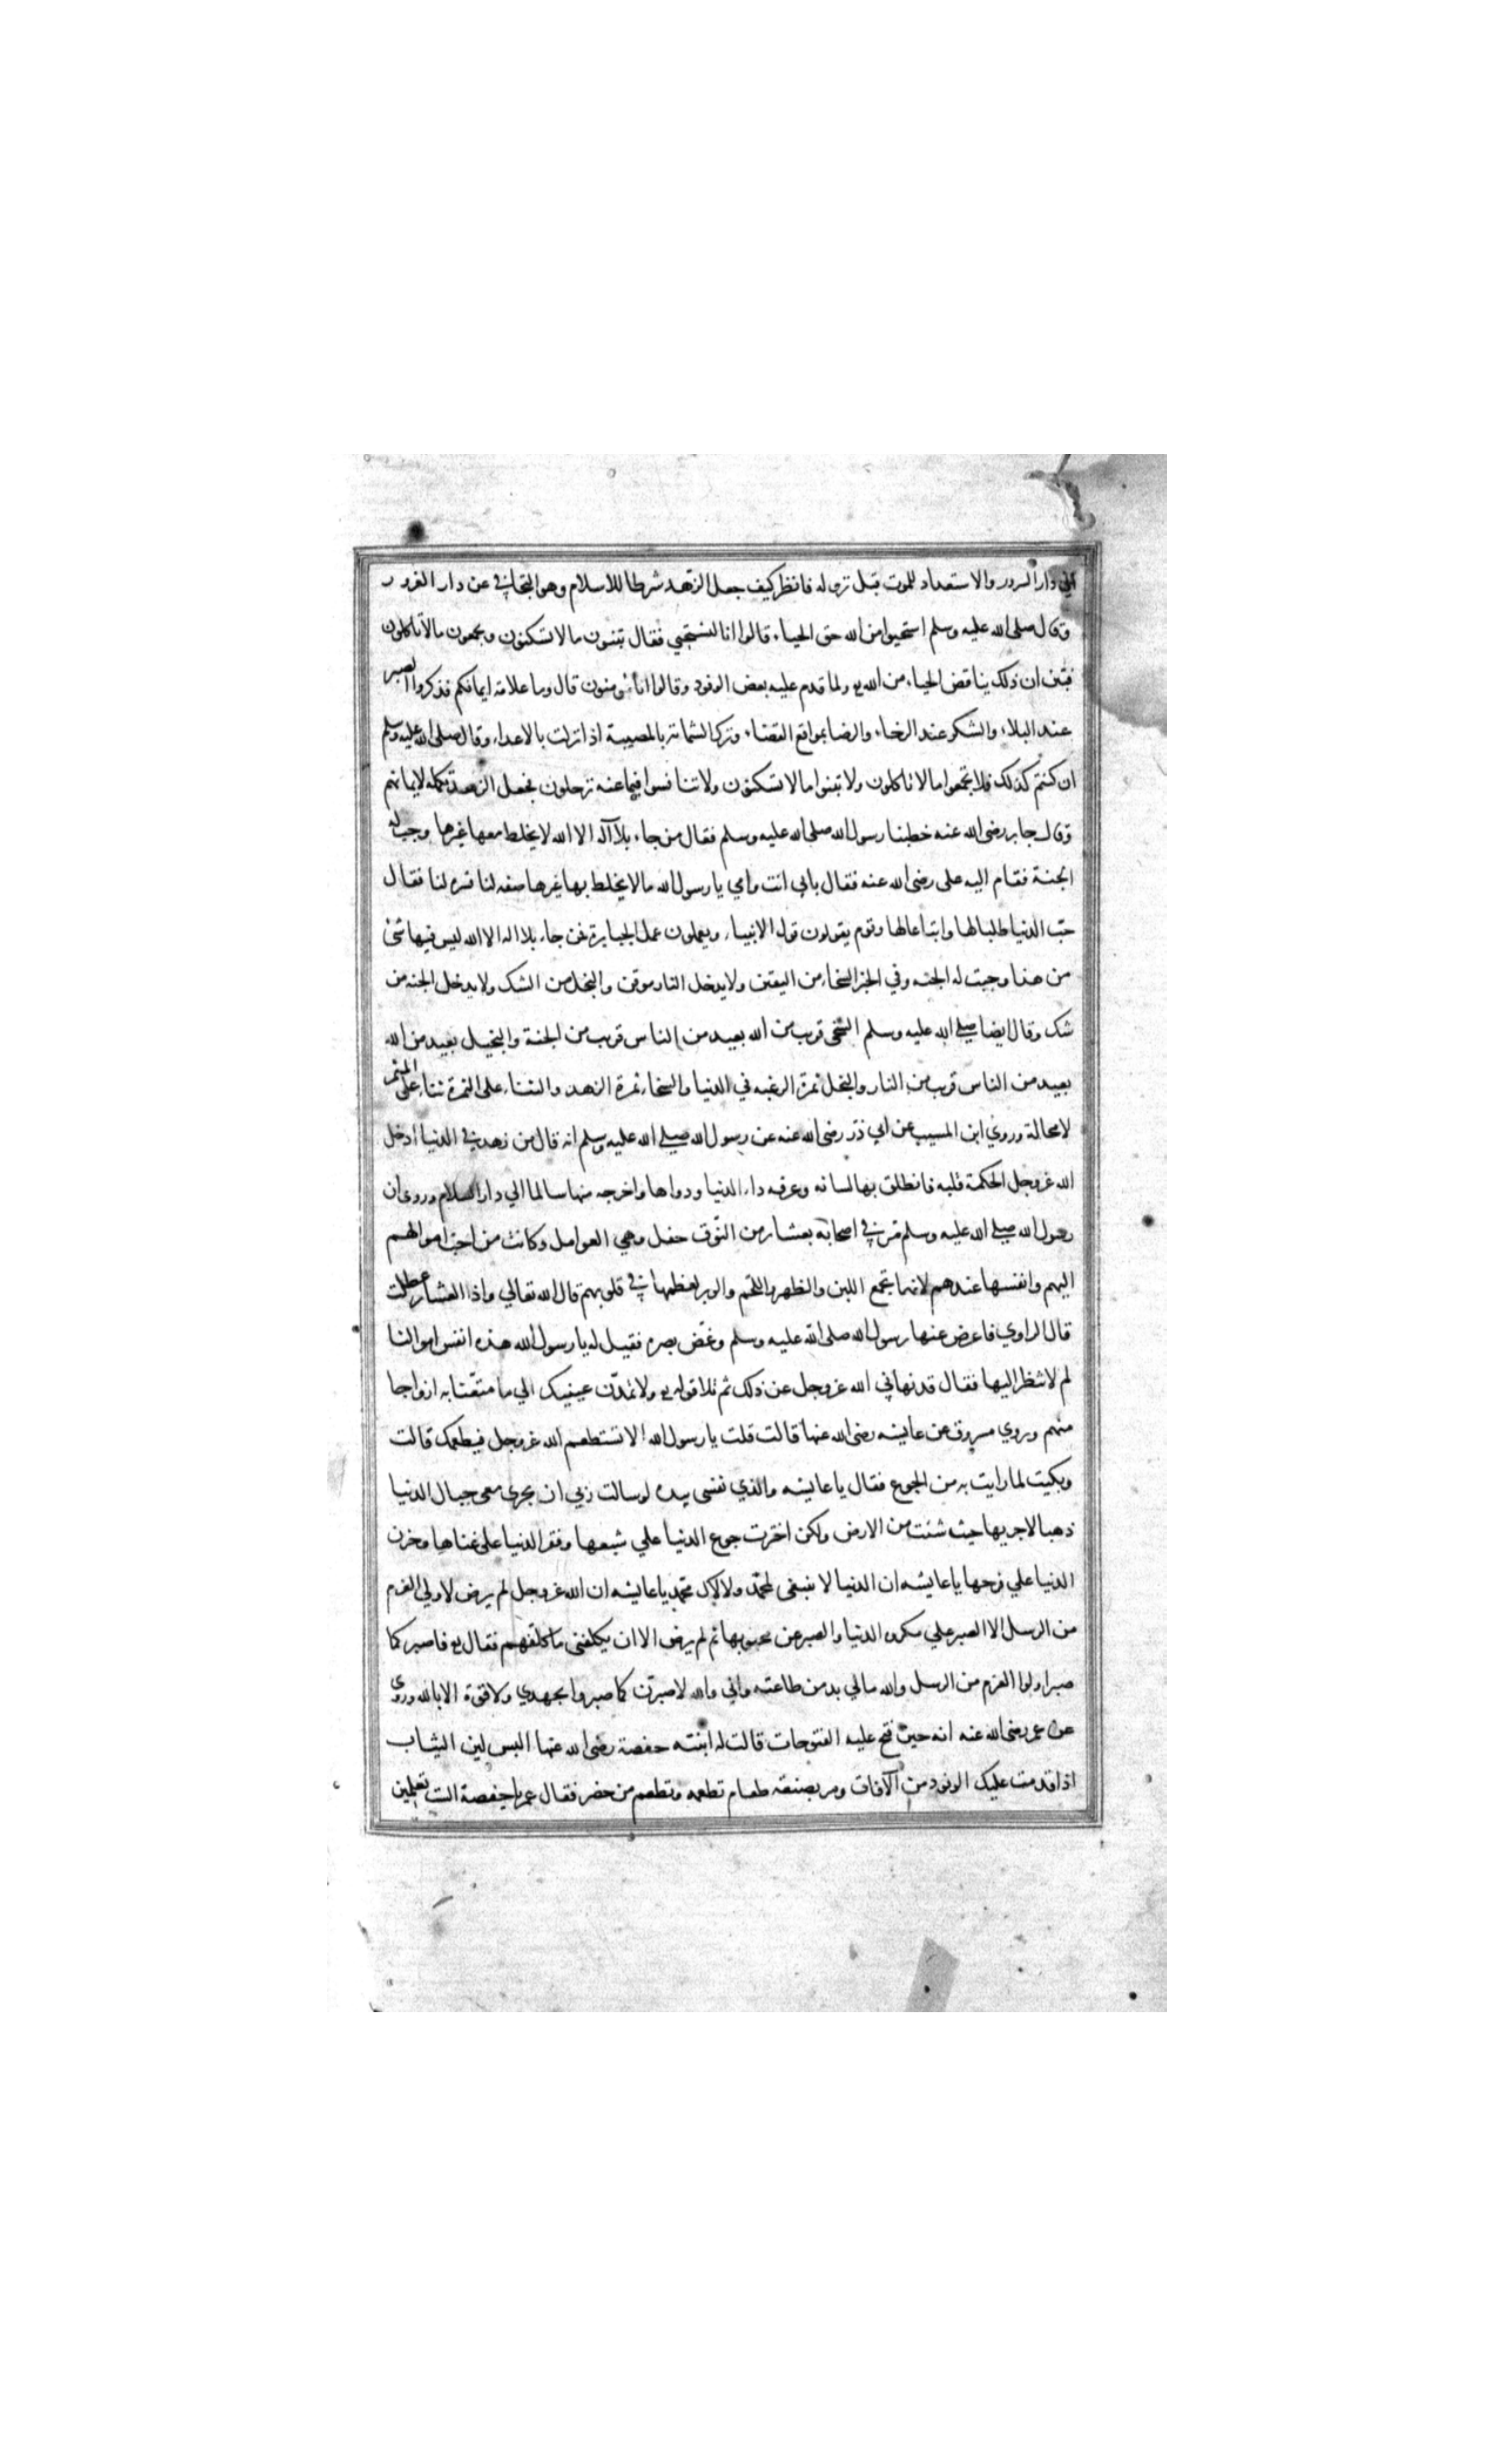 الي دار السرور والاستعداد للموت قبل نزوله فانظر كيف جعل الزهد شرطا للاسلام وهو التجافي عن دار الغرور
وقال صلى الله عليه وسلم استحيوا من الله حق الحياء قالوا انا لنستحيي فقال تبنون ما لا تسكنون وتجمعون ما لا تاكلون
فبين ان ذلك يناقض الحياء من الله تع ولما قدم عليه بعض الوفود وقالوا انا مؤمنون قال وما علامة ايمانكم فذكروا الصبر
عند البلاء والشكر عند الرخاء والرضا بمواقع القضاء وترك الشماتة بالمصيبة اذا نزلت بالاعداء وقال صلى الله عليه وسلم
ان كنتم كذلك فلا تجمعوا ما لا تاكلون ولا تبنوا ما لا تسكنون ولا تنافسوا فيما عنه ترحلون فجعل الزهد تكملة لايمانهم
وقال جابر رضى الله عنه خطبنا رسول الله صلى الله عليه وسلم فقال من جاء بلا آله الا الله لا يخلط معها غيرها وجبت له
الجنة فقام اليه على رضى الله عنه فقال بابي انت وامي يا رسول الله ما لا يخلط بها غيرها صفه لنا فسره لنا فقال
حب الدنيا طلبا لها واتباعا لها وقوم يقولون قول الانبياء ويعملون عمل الجبابرة فمن جاء بلا اله الا الله ليس فيها شئ
من هذا وجبت له الجنه وفي الخبر السخاء من اليقين ولا يدخل النار موقن والبخل من الشك ولا يدخل الجنه من
شك وقال ايضا صلي الله عليه وسلم السخى قريب من الله بعيد من الناس قريب من الجنة والبخيل بعيد من الله
بعيد من الناس قريب من النار والبخل ثمرة الرغبه في الدنيا والسخاء ثمرة الزهد والثناء على الثمرة ثناء على المثمر
لا محالة وروي ابن المسيب عن ابي ذر رضى الله عنه عن رسول الله صلي الله عليه وسلم انه قال من زهد في الدنيا ادخل
الله عز وجل الحكمة قلبه فانطلق بها لسانه وعرفه داء الدنيا ودواها واخرجه منها سالما الي دار السلام وروى ان
رسول الله صلي الله عليه وسلم مر في اصحابه بعشار من النوق حفل وهي العوامل وكانت من احب اموالهم
اليهم وانفسها عندهم لانها تجمع اللبن والظهر واللحم والوبر لعظمها في قلوبهم قال الله تعالي واذا العشار عطلت
قال الراوي فاعرض عنها رسول الله صلى الله عليه وسلم وغض بصره فقيل له يا رسول الله هذه انفس اموالنا
لم لا تنظر اليها فقال قد نهاني الله عز وجل عن ذلك ثم تلا قوله تع ولا تمدن عينيك الي ما متعنا به ازواجا
منهم وروي مسروق عن عايشه رضى الله عنها قالت قلت يا رسول الله الا تستطعم الله عز وجل فيطعمك قالت
وبكيت لما رايت به من الجوع فقال يا عايشه والذي نفسى بيده لو سالت ربي ان يجري معي جبال الدنيا
ذهبا لاجريها حيث شئت من الارض ولكن اخترت جوع الدنيا علي شبعها وفقر الدنيا على غناها وحزن
الدنيا علي فرحها يا عايشه ان الدنيا لا تنبغى لمحمد ولا لآل محمد يا عايشه ان الله عز وجل لم يرض لاولي العزم
من الرسل الا الصبر علي مكروه الدنيا والصبر عن محبوبها ثم لم يرض الا ان يكلفنى ما كلفهم فقال تع فاصبر كما
صبر اولوا العزم من الرسل والله مالي بد من طاعته واني والله لاصبرن كما صبروا بجهدي ولا قوة الا بالله وروى
عن عمر رضى الله عنه انه حين فتح عليه الفتوحات قالت له ابنته حفصة رضى الله عنها البس لين الثياب
اذا قدمت عليك الوفود من الآفاق ومر بصنعة طعام تطعمه وتطعم من حضر فقال عمر يا حفصة الست تعلمين